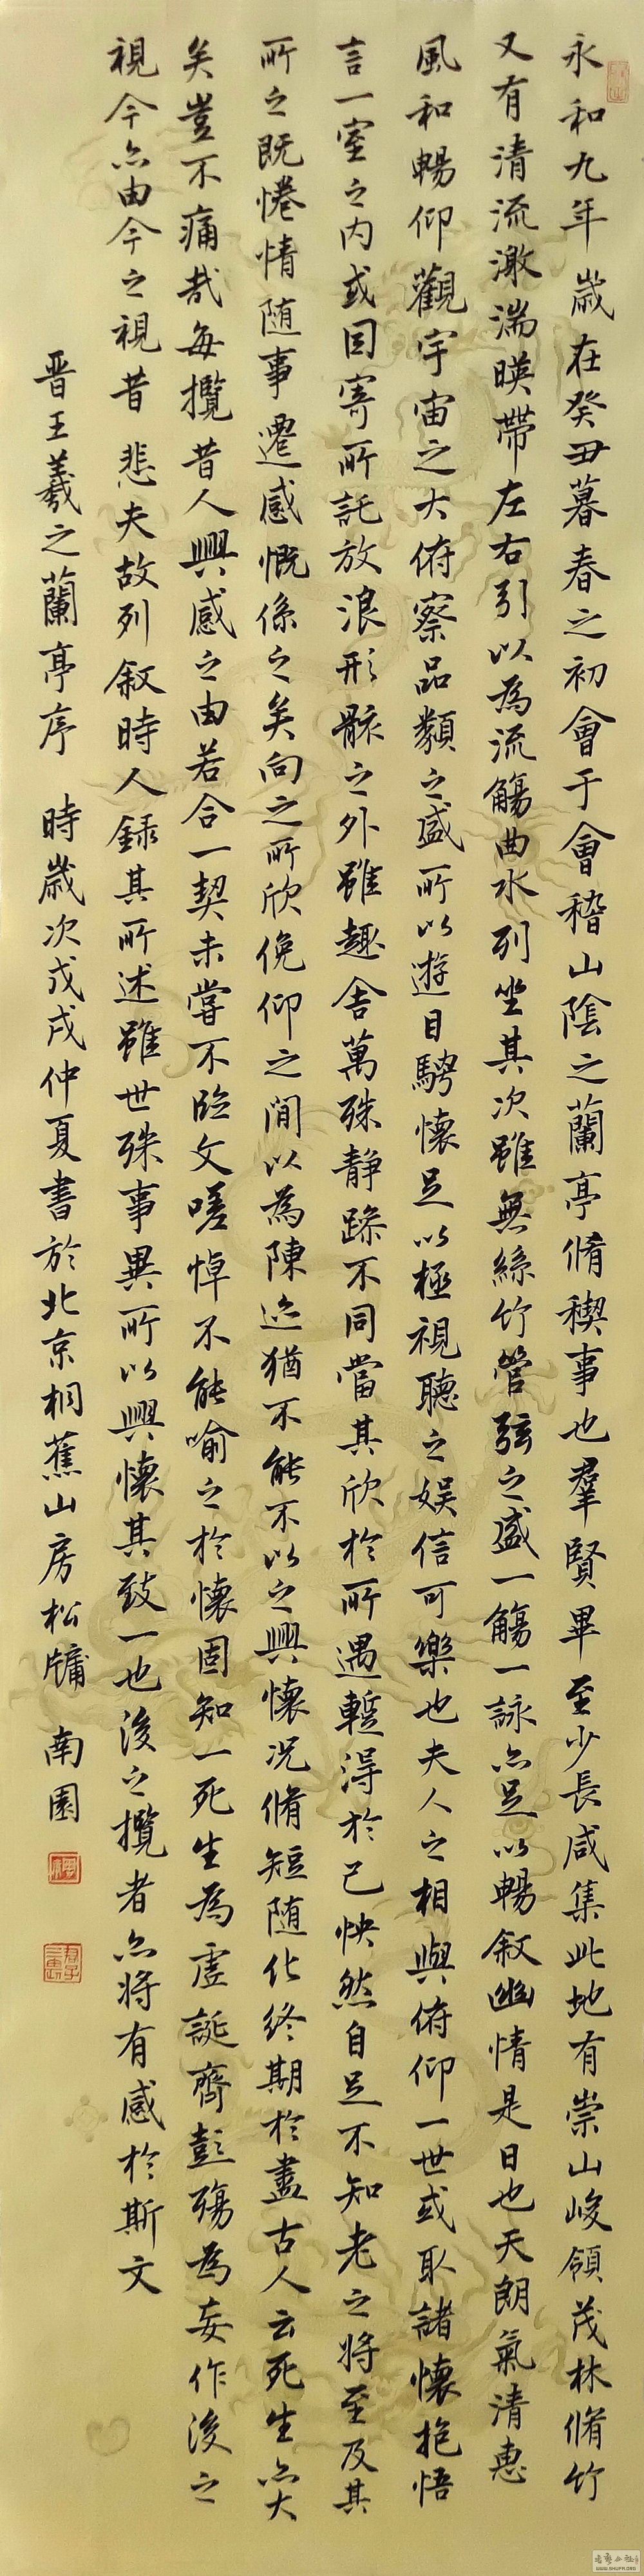 永和九年歲在癸丑暮春之初會于會稽山陰之蘭亭脩稧事也羣賢畢至少長咸集此地有崇山峻領茂林脩竹
又有清流激湍暎帶左右引以為流觴曲水列坐其次雖無絲竹管弦之盛一觴一詠亦足以暢敘幽情是日也天朗氣清惠
風和暢仰觀宇宙之大俯察品類之盛所以遊目騁懷足以極視聽之娛信可樂也夫人之相與俯仰一世或取諸懷抱悟
言一室之內或因寄所託放浪形骸之外雖趣舍萬殊靜躁不同當其欣於所遇暫得於己怏然自足不知老之將至及其
所之既惓情隨事遷感慨係之矣向之所欣俛仰之閒以為陳迹猶不能不以之興懷況脩短隨化終期於盡古人云死生亦大
矣豈不痛哉每攬昔人興感之由若合一契未嘗不臨文嗟悼不能喻之於懷固知一死生為虛誕齊彭殤為妄作後之
視今亦由今之視昔悲夫故列敘時人錄其所述雖世殊事異所以興懷其致一也後之攬者亦將有感於斯文
晉王羲之蘭亭序 時歲次戊戌仲夏書於北京桐蕉山房松牖 南園
WWW.SHUFR.ORG